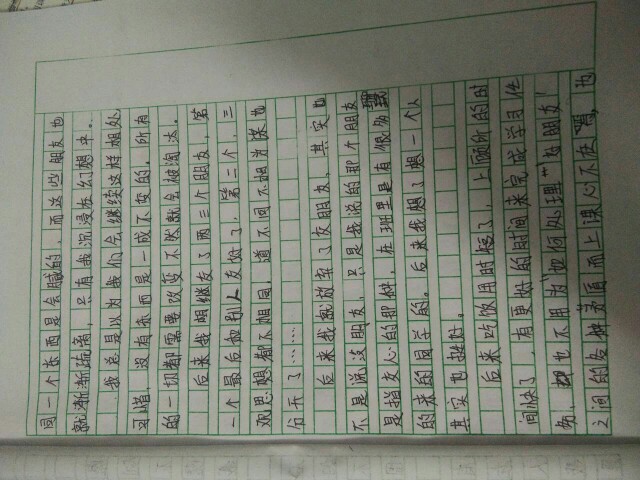 同一个东西是会腻的，而这些朋友也
就渐渐疏离，只有我沉浸在幻想中。
我总是以为我们会继续这样相处
可惜，没有东西是一成不变的，所有
的一切都需要改变不然就会被淘汰。
后来我相继交了两三个朋友，第
一个最后和别人友好了，第二个，三
观思想都不相同，道不同不相为谋也
分开了……
后来我就放弃了交朋友，其实也
不是说没朋友，只是我说的那个朋友
是指交心的那种，在班里是有很多
的来的同学的。后来我想了想一个人
其实也挺好。
后来吃饭用时短了，上厕所的时
间快了，有更好的时间来完成学习任
务，也不用为“如何处理”与朋友
之间的各种矛盾而上课心不在焉，也